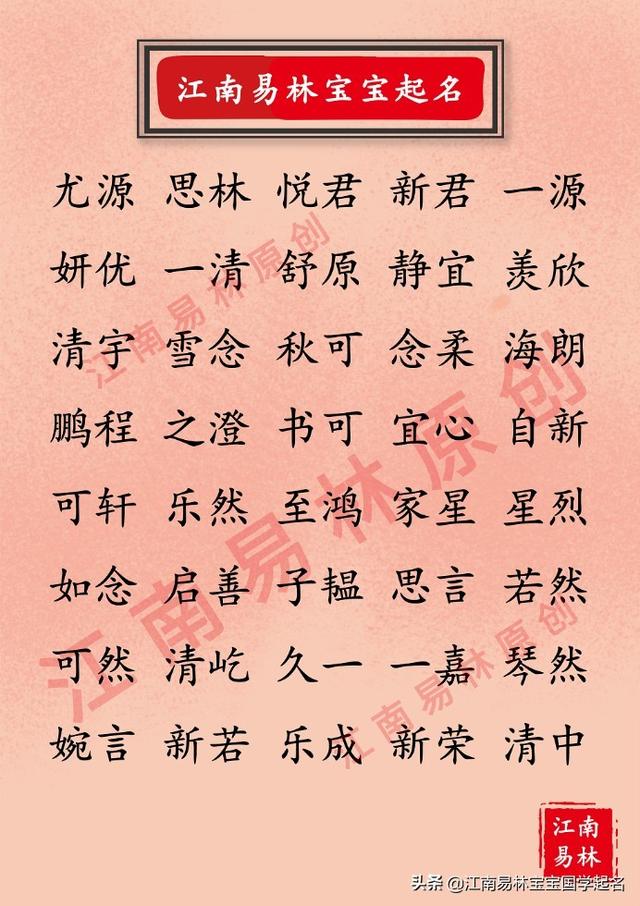 江南易林宝宝起名
尤源 思林 悦君 新君 一源
妍优 一清 舒原 静宜 羡欣
清宇 雪念 秋可 念柔 海朗
鹏程 之澄 书可 宜心 自新
可轩 乐然 至鸿 家星 星烈
如念 启善 子韫 思言 若然
可然 清屹 久一 一嘉 琴然
婉言 新若 乐成 新荣 清中
江南易林原创
江南易林原创
江南易林原创
江南
易林
头条 @江南易林宝宝国学起名